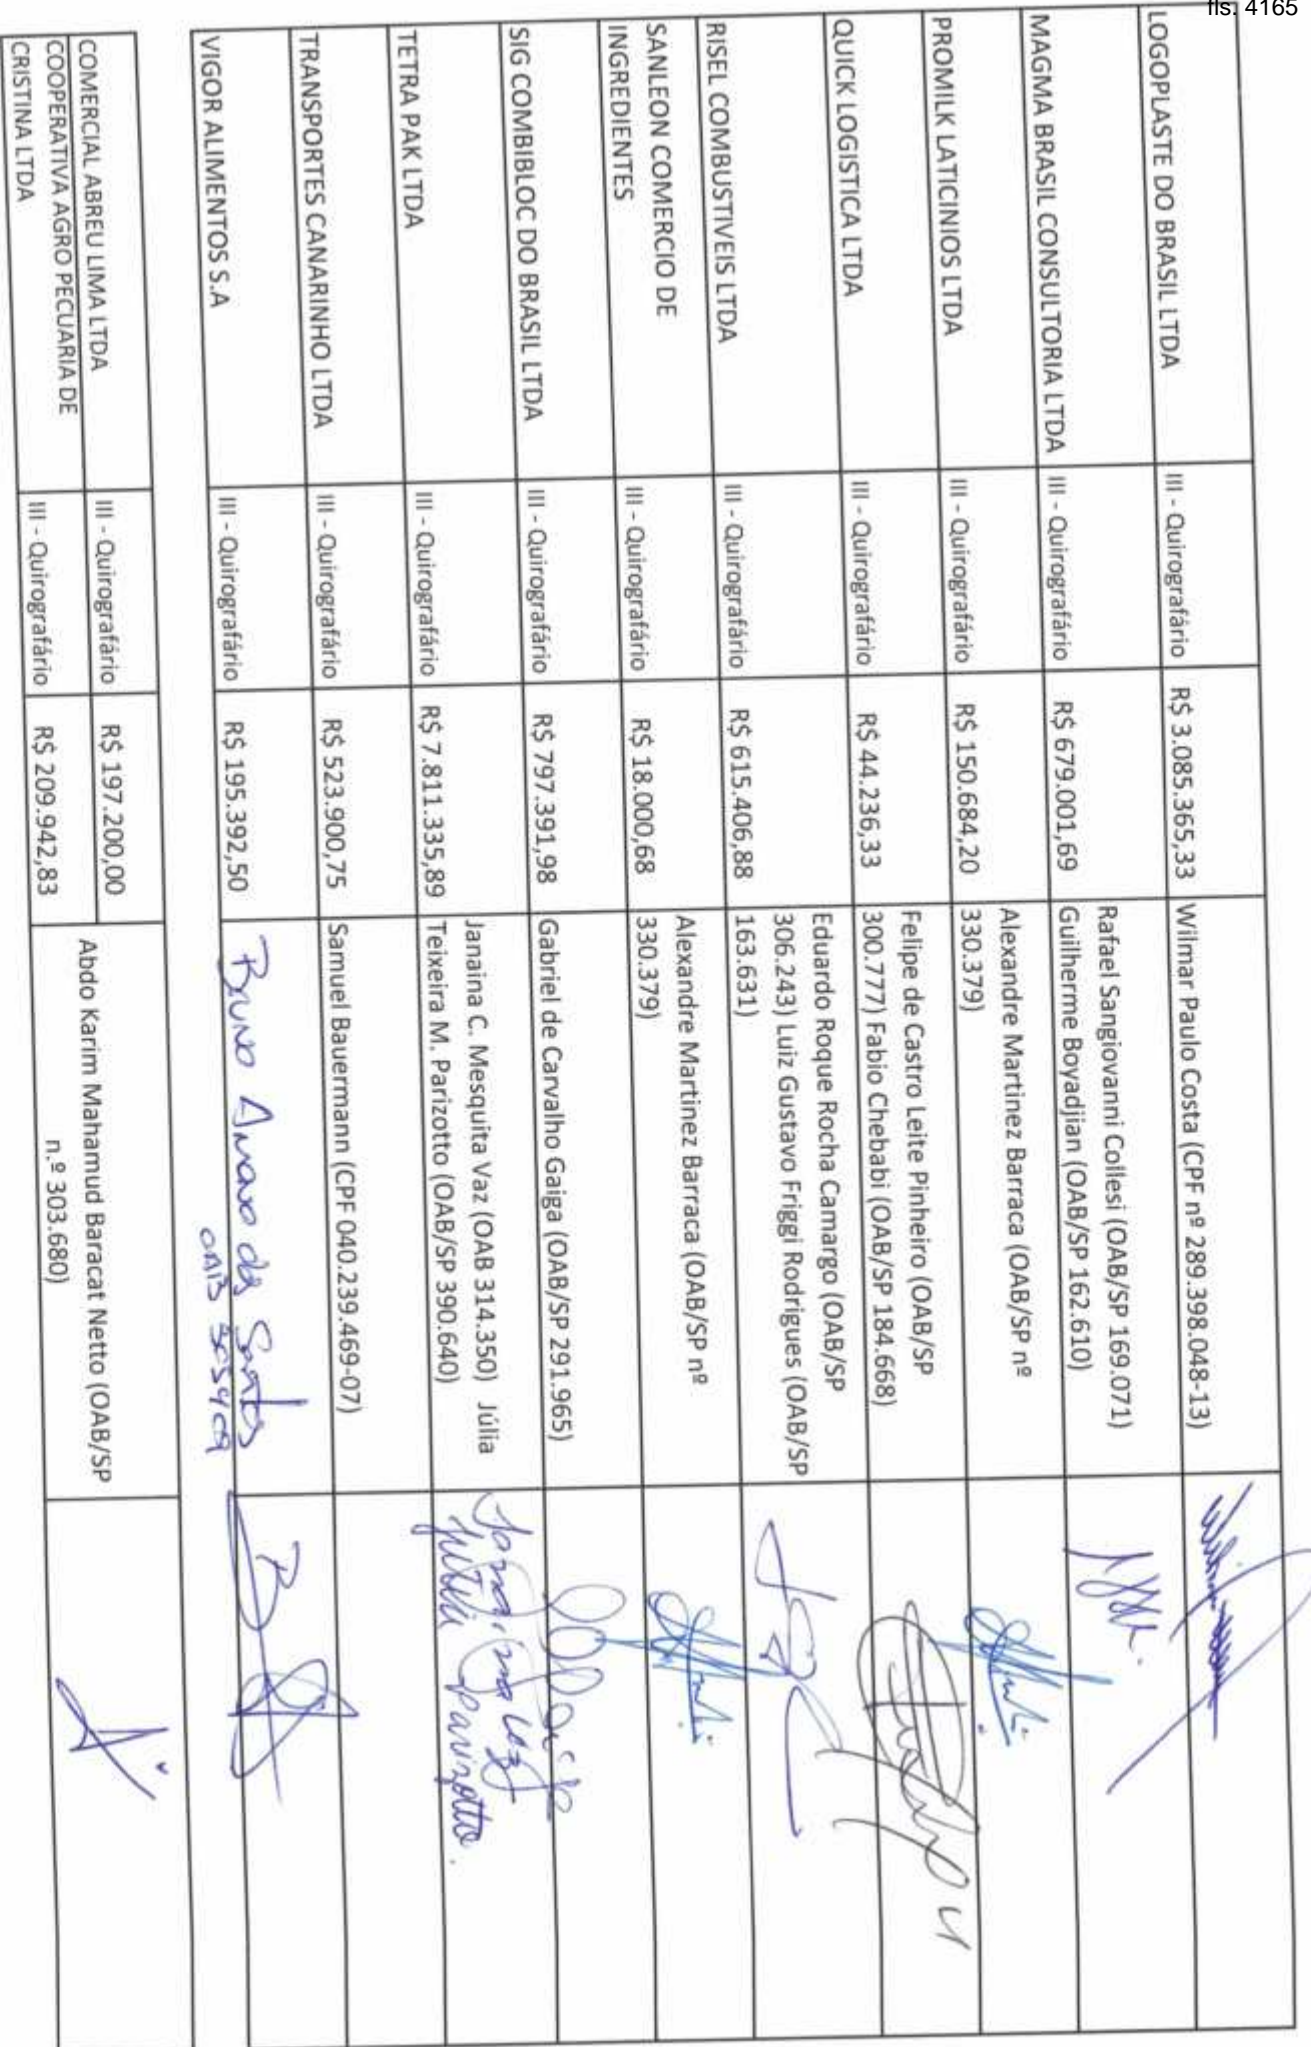 fls. 4165
LOGOPLASTE DO BRASIL LTDA III - Quirografário R$ 3.085.365,33 Wilmar Paulo Costa (CPF nº 289.398.048-13)
MAGMA BRASIL CONSULTORIA LTDA III - Quirografário R$ 679.001,69 Rafael Sangiovanni Collesi (OAB/SP 169.071)
Guilherme Boyadjian (OAB/SP 162.610)
PROMILK LATICINIOS LTDA III - Quirografário R$ 150.684,20 Alexandre Martinez Barraca (OAB/SP nº
330.379)
QUICK LOGISTICA LTDA III - Quirografário R$ 44.236,33 Felipe de Castro Leite Pinheiro (OAB/SP
300.777) Fabio Chebabi (OAB/SP 184.668)
RISEL COMBUSTIVEIS LTDA III - Quirografário R$ 615.406,88 Eduardo Roque Rocha Camargo (OAB/SP
306.243) Luiz Gustavo Friggi Rodrigues (OAB/SP
163.631)
SANLEON COMERCIO DE
INGREDIENTES III - Quirografário R$ 18.000,68 Alexandre Martinez Barraca (OAB/SP nº
330.379)
SIG COMBIBLOC DO BRASIL LTDA III - Quirografário R$ 797.391,98 Gabriel de Carvalho Gaiga (OAB/SP 291.965)
TETRA PAK LTDA III - Quirografário R$ 7.811.335,89 Janaina C. Mesquita Vaz (OAB 314.350) Júlia
Teixeira M. Parizotto (OAB/SP 390.640)
Janaina Vaz
Julia Parizotto.
TRANSPORTES CANARINHO LTDA III - Quirografário R$ 523.900,75 Samuel Bauermann (CPF 040.239.469-07)
VIGOR ALIMENTOS S.A III - Quirografário R$ 195.392,50 Bruno Amaro dos Santos
OAB
COMERCIAL ABREU LIMA LTDA III - Quirografário R$ 197.200,00 Abdo Karim Mahamud Baracat Netto (OAB/SP
n.º 303.680)
COOPERATIVA AGRO PECUARIA DE
CRISTINA LTDA III - Quirografário R$ 209.942,83